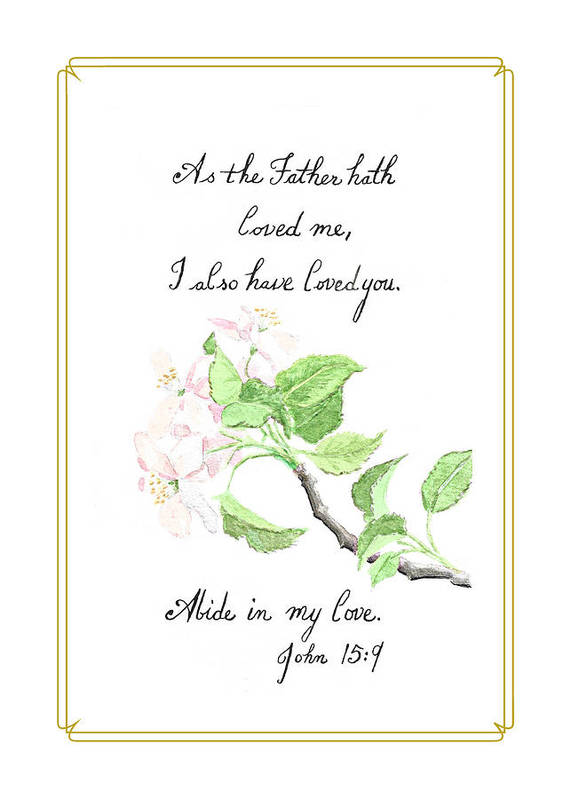 As the Father hath
loved me,
I also have loved you.
Abide in my love.
John 15:9